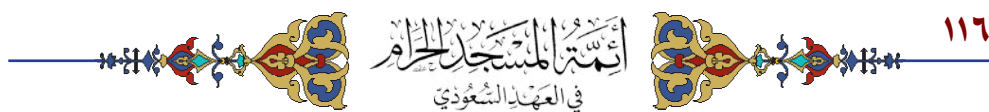 ١١٦
أَئِمَّةُ المَسْجِدِ الحَرَامِ
في العَهْدِ السُّعُودِيّ